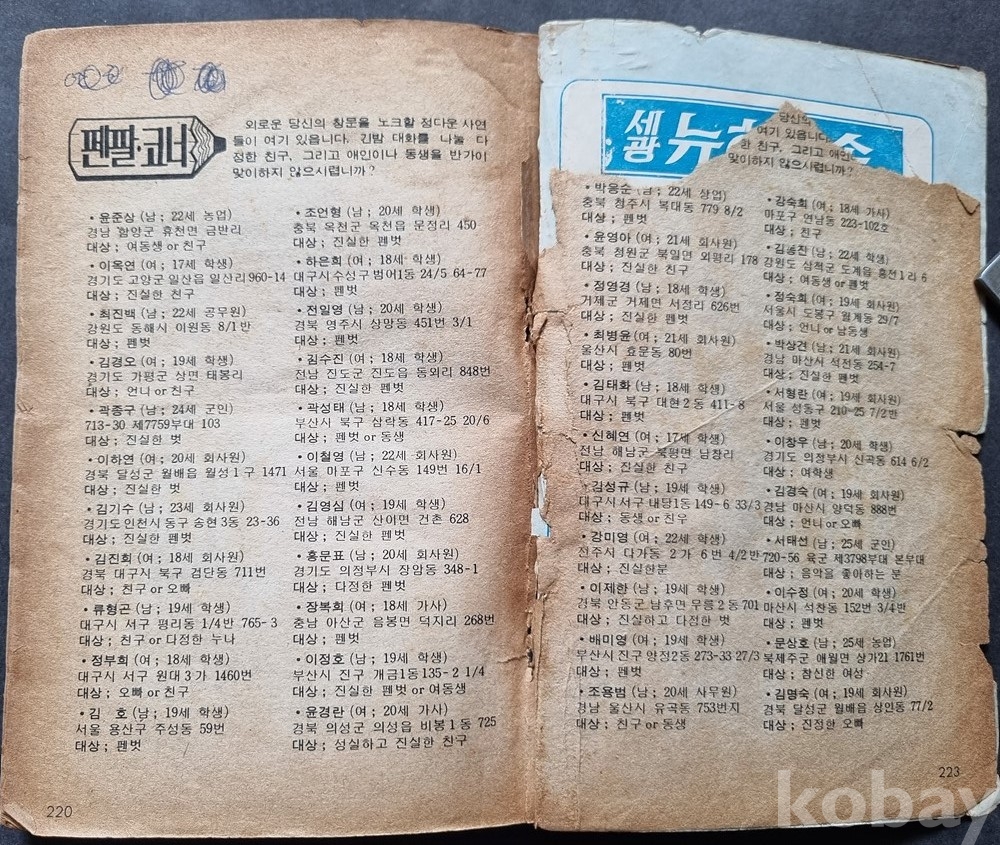 펜팔·코너
외로운 당신의 창문을 노크할 정다운 사연
들이 여기 있읍니다. 긴밤 대화를 나눌 다
정한 친구, 그리고 애인이나 동생을 반가이
맞이하지 않으시렵니까?
• 윤준상 (남 ; 22세 농업)
경남 함양군 휴천면 금반리
대상 ; 여동생 or 친구
• 이옥연 (여 ; 17세 학생)
경기도 고양군 일산읍 일산리 960-14
대상 ; 진실한 친구
• 최진백 (남 ; 22세 공무원)
강원도 동해시 이원동 8/1반
대상 ; 펜벗
• 김경오 (여 ; 19세 학생)
경기도 가평군 상면 태봉리
대상 ; 언니 or 친구
• 곽종구 (남 ; 24세 군인)
713-30 제7759부대 103
대상 ; 진실한 벗
• 이하연 (여 ; 20세 회사원)
경북 달성군 월배읍 월성 1구 1471
대상 ; 진실한 벗
• 김기수 (남 ; 23세 회사원)
경기도 인천시 동구 송현 3동 23-36
대상 ; 진실한 펜벗
• 김진희 (여 ; 18세 회사원)
경북 대구시 북구 검단동 711번
대상 ; 친구 or 오빠
• 류형곤 (남 ; 19세 학생)
대구시 서구 평리동 1/4반 765-3
대상 ; 친구 or 다정한 누나
• 정부희 (여 ; 18세 학생)
대구시 서구 원대 3가 1460번
대상 ; 오빠 or 친구
• 김 호 (남 ; 19세 학생)
서울 용산구 주성동 59번
대상 ; 펜벗
• 조언형 (남 ; 20세 학생)
충북 옥천군 옥천읍 문정리 450
대상 ; 진실한 펜벗
• 하은희 (여 ; 18세 학생)
대구시 수성구 범어1동 24/5 64-77
대상 ; 펜벗
• 전일영 (남 ; 20세 학생)
경북 영주시 상망동 451번 3/1
대상 ; 펜벗
• 김수진 (여 ; 18세 학생)
전남 진도군 진도읍 동외리 848번
대상 ; 진실한 펜벗
• 곽성태 (남 ; 18세 학생)
부산시 북구 삼락동 417-25 20/6
대상 ; 펜벗 or 동생
• 이철영 (남 ; 22세 회사원)
서울 마포구 신수동 149번 16/1
대상 ; 펜벗
• 김영심 (여 ; 19세 학생)
전남 해남군 산이면 건촌 628
대상 ; 진실한 펜벗
• 홍문표 (남 ; 20세 회사원)
경기도 의정부시 장암동 348-1
대상 ; 다정한 펜벗
• 장복희 (여 ; 18세 가사)
충남 아산군 음봉면 덕지리 268번
대상 ; 펜벗
• 이정호 (남 ; 19세 학생)
부산시 진구 개금1동 135-2 1/4
대상 ; 진실한 펜벗 or 여동생
• 윤경란 (여 ; 20세 가사)
경북 의성군 의성읍 비봉 1동 725
대상 ; 성실하고 진실한 친구
220
세광
당신의
여기 있읍니다.
한 친구, 그리고 애인
맞이하지 않으시렵니까?
• 박응순 (남 ; 22세 상업)
충북 청주시 복대동 779 8/2
대상 ; 펜벗
• 윤영아 (여 ; 21세 회사원)
충북 청원군 북일면 외평리 178
대상 ; 진실한 친구
• 정영경 (남 ; 18세 학생)
거제군 거제면 서정리 626번
대상 ; 진실한 펜벗
• 최병윤 (여 ; 21세 회사원)
울산시 효문동 80번
대상 ; 진실한 펜벗
• 김태화 (남 ; 18세 학생)
대구시 북구 대현 2동 411-8
대상 ; 펜벗
• 신혜연 (여 ; 17세 학생)
전남 해남군 북평면 남창리
대상 ; 진실한 친구
• 김성규 (남 ; 19세 학생)
대구시 서구 내당 1동 149-6 33/3
대상 ; 동생 or 친우
• 강미영 (여 ; 22세 학생)
전주시 다가동 2가 6번 4/2반
대상 ; 진실한분
• 이제한 (남 ; 19세 학생)
경북 안동군 남후면 무릉 2동 701
대상 ; 진실하고 다정한 벗
• 배미영 (여 ; 19세 학생)
부산시 진구 양정2동 273-33 27/3
대상 ; 진실한 펜벗
• 조용범 (남 ; 20세 사무원)
경남 울산시 유곡동 753번지
대상 ; 친구 or 동생
• 김숙희 (여 ; 18세 가사)
마포구 연남동 223-102호
대상 ; 친구
(남 ; 22세 학생)
강원도 삼척군 도계읍 흥전 1리 6
대상 ; 여동생 or 펜벗
• 정숙희 (여 ; 19세 회사원)
서울시 도봉구 월계동 29/7
대상 ; 언니 or 남동생
• 박상견 (남 ; 21세 회사원)
경남 마산시 석전동 254-7
대상 ; 진실한 펜벗
• 서형란 (여 ; 19세 회사원)
서울 성동구 210-25 7/2반
대상 ; 펜벗
• 이창우 (남 ; 20세 학생)
경기도 의정부시 신곡동 614 6/2
대상 ; 여학생
• 김경숙 (여 ; 19세 회사원)
경남 마산시 양덕동 888번
대상 ; 언니 or 오빠
• 서태선 (남 ; 25세 군인)
720-56 육군 제3798부대 본부대
대상 ; 음악을 좋아하는 분
• 이수정 (여 ; 20세 학생)
마산시 석찬동 152번 3/4반
대상 ; 진실한 펜벗
• 문상호 (남 ; 25세 농업)
북제주군 애월면 상가21 1761번
대상 ; 참신한 여성
• 김명숙 (여 ; 19세 회사원)
경북 달성군 월배읍 상인동 77/2
대상 ; 진정한 오빠
223
kobay